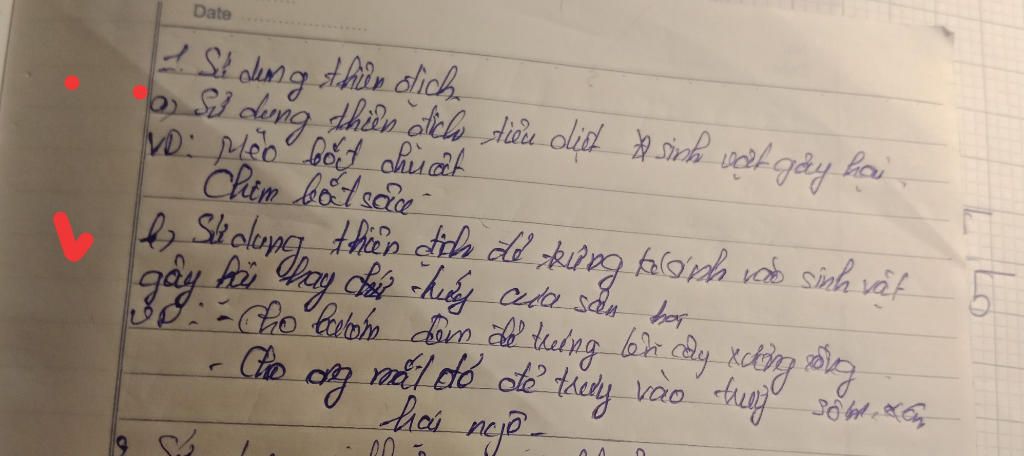 Date
1. Sử dụng thiên địch
a) Sử dụng thiên địch tiêu diệt sinh vật gây hại.
VD: Mèo bắt chuột
Chim bắt sâu
b) Sử dụng thiên địch đẻ trứng kí sinh vào sinh vật
gây hại hay trứng của sâu hại
VD: - Cho bướm đêm đẻ trứng lên cây xương rồng
- Cho ong mắt đỏ đẻ trứng vào trứng sâu xám
hại ngô -